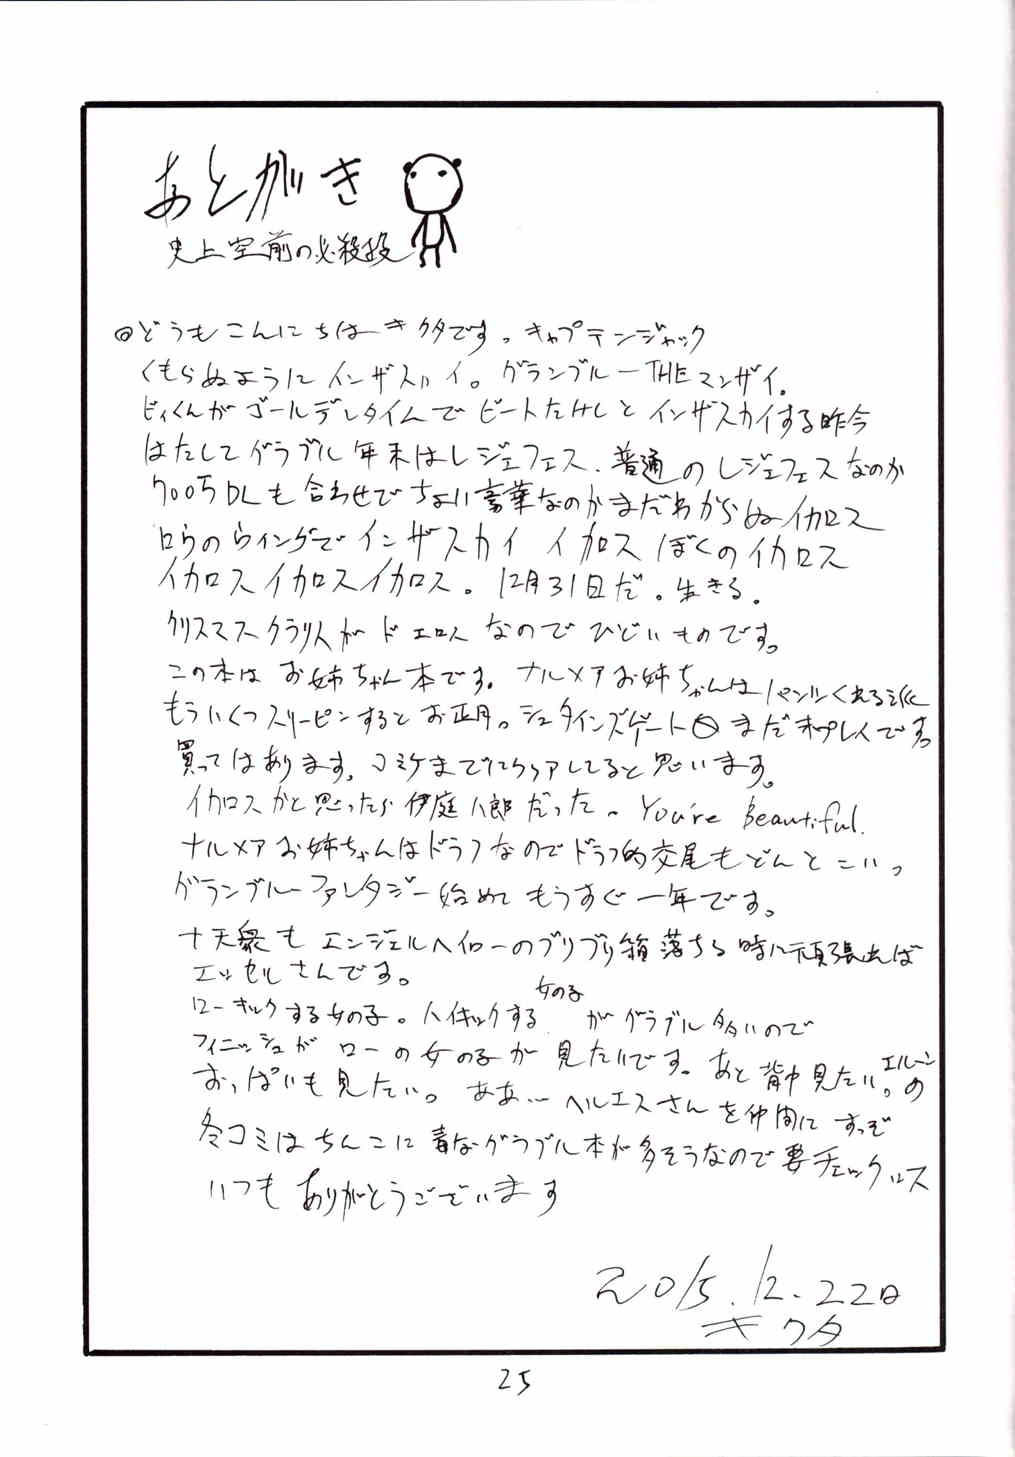 あとがき
史上空前の必殺技
◎どうもこんにちはーキクタです。キャプテンジャック
くもらぬようにインザスカイ。グランブルーTHEマンザイ。
ビィくんがゴールデンタイムでビートたけしとインザスカイする昨今
はたしてグラブル年末はレジェフェス、普通のレジェフェスなのか
700万DLも合わせでちょい豪華なのかまだわからぬイカロス
ロウのウイングでインザスカイ イカロス ぼくのイカロス
イカロスイカロスイカロス。12月31日だ。生きる。
クリスマスクラリスがドエロスなのでひどいものです。
この本はお姉ちゃん本です。ナルメアお姉ちゃんはパンツくれる派
もういくつスリーピンするとお正月。シュタインズゲート0まだ未プレイです。
買ってはあります。コミケまでにクリアしてると思います。
イカロスかと思ったら伊庭八郎だった〜You're Beautiful.
ナルメアお姉ちゃんはドラフなのでドラフ的交尾もどんとこいっ
グランブルーファンタジー始めてもうすぐ一年です。
十天衆もエンジェルヘイローのブリブリ箱落ちる時に頑張れば
エッセルさんです。
ローキックする女の子。ハイキックする女の子がグラブル多いので
フィニッシュがローの女の子が見たいです。あと背中見たい。エルーンの
おっぱいも見たい。ああ…ヘルエスさんを仲間にすっぞ
冬コミはちんこに毒なグラブル本が多そうなので要チェックっス
いつもありがとうございます
2015.12.22日
キクタ
25